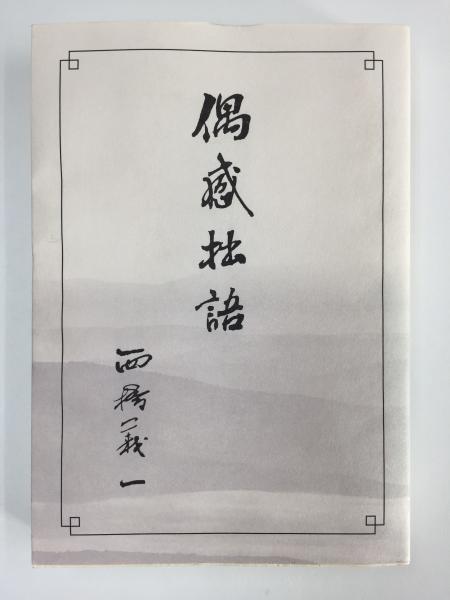 偶感拙語
西橋義一